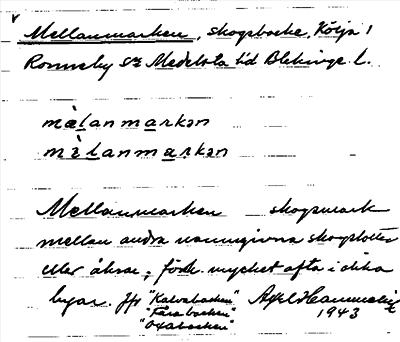 v
Mellanmarken, skogsbacke, Kölja 1
Ronneby sn Medelsta hd Blekinge l.
mὲlanmarkən
mὲlanmarkən
Mellanmarken skogsmark
mellan andra namngivna skogslotter
eller åkrar; förk. mycket ofta i olika
byar. Jfr "Kalvabacken"
"Fårabacken"
"Oxabacken"
Axel Hammarlid
1943